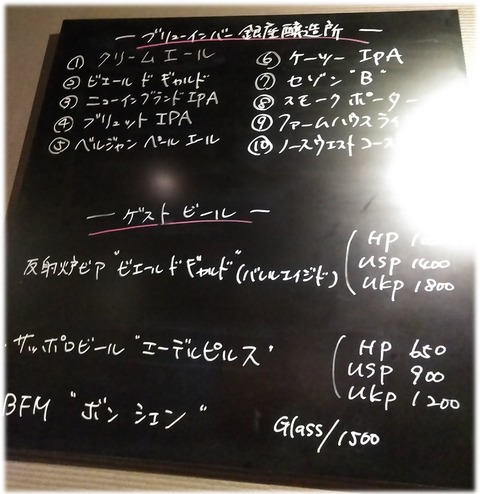 ブリューインバー 銀座醸造所
① クリームエール
② ビエールドギャルド
③ ニューイングランドIPA
④ ブリュットIPA
⑤ ベルジャンペールエール
⑥ ケーツー IPA
⑦ セゾン"B"
⑧ スモークポーター
⑨ ファームハウスライ
⑩ ノースウエストコース
ゲストビール
反射炉ビア "ビエールドギャルド" (バレルエイジド)
HP
USP 1400
UKP 1800
サッポロビール "エーデルピルス"
HP 650
USP 900
UKP 1200
BFM "ボンシェン"
Glass/1500